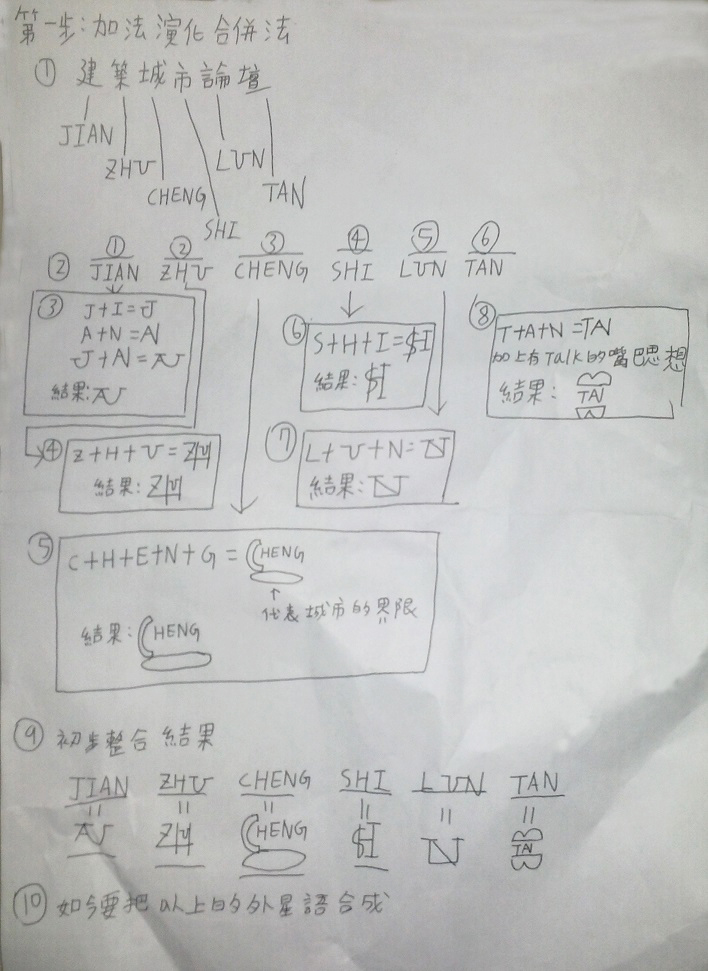 第一步:加法演化合併法
① 建築城市論壇
JIAN
ZHU
CHENG
SHI
LUN
TAN
① ② ③ ④ ⑤ ⑥
② JIAN ZHU CHENG SHI LUN TAN
③ J+I=J
A+N=AN
J+AN=
結果:
④ Z+H+U=ZHU
結果:ZHU
⑤ C+H+E+N+G=CHENG
代表城市的界限
結果:CHENG
⑥ S+H+I=$I
結果:$I
⑦ L+U+N=
結果:
⑧ T+A+N=TAN
加上有Talk的嘴巴思想
結果:TAN
⑨ 初步整合結果
JIAN ZHU CHENG SHI LUN TAN
= = = = = =
ZHU CHENG $I TAN
⑩ 如今要把以上的外星語合成